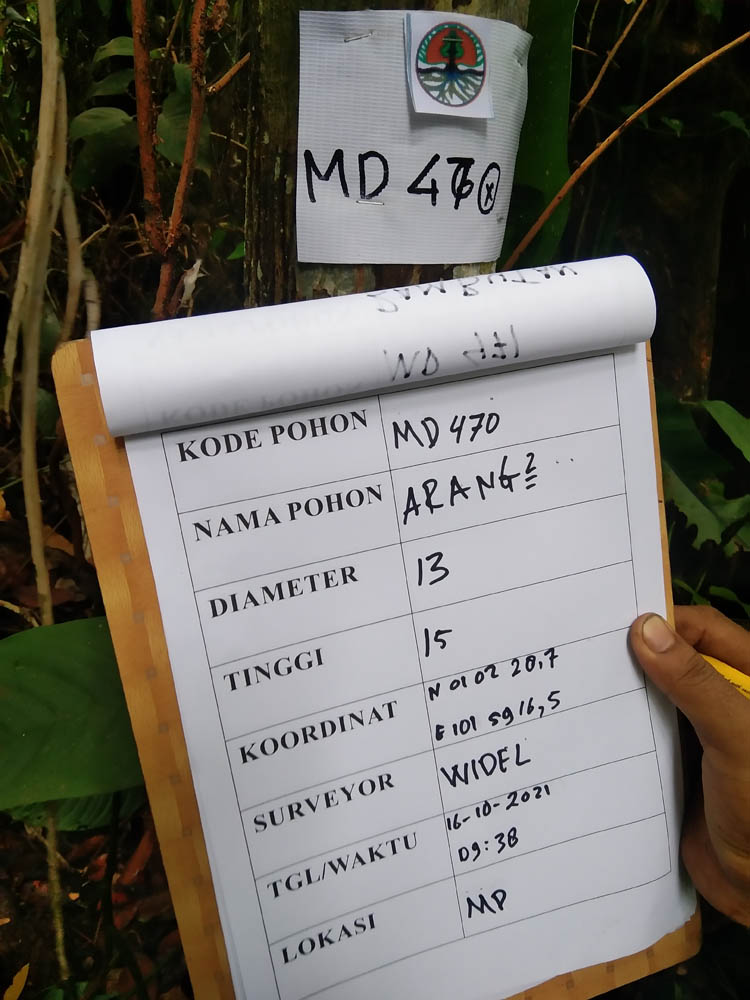 MD 470
KODE POHON MD 470
NAMA POHON ARANG2
DIAMETER 13
TINGGI 15
KOORDINAT N 01 02 20,7
E 101 59 16,5
SURVEYOR WIDEL
TGL/WAKTU 16-10-2021
09:38
LOKASI MP